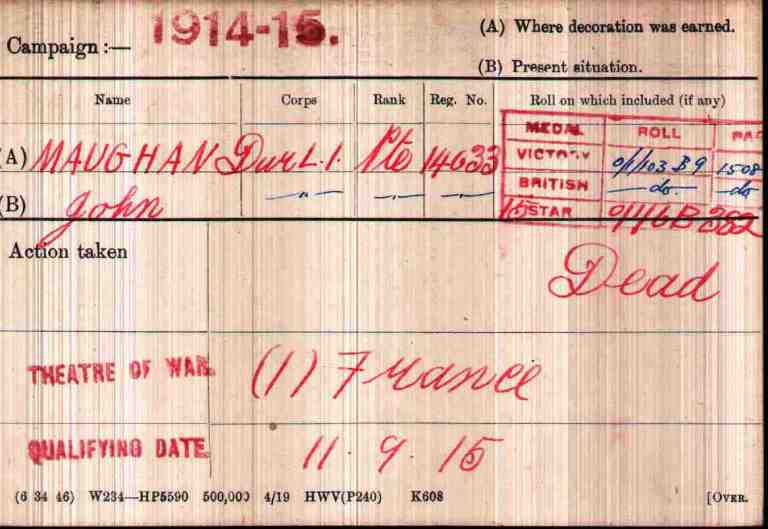 Campaign :— 1914-15. (A) Where decoration was earned.
(B) Present situation.
Name Corps Rank Reg. No. Roll on which included (if any)
MEDAL ROLL
(A) MAUGHAN Dur L.I. Pte 14633 VICTORY O/1/103 B9 1508
(B) John —"— —"— —"— BRITISH —do.— —do
15 STAR O/1/6B 382
Action taken
Dead
THEATRE OF WAR. (1) France
QUALIFYING DATE. 11. 9. 15
(6 34 46) W234—HP5590 500,000 4/19 HWV(P240) K608 [OVER.